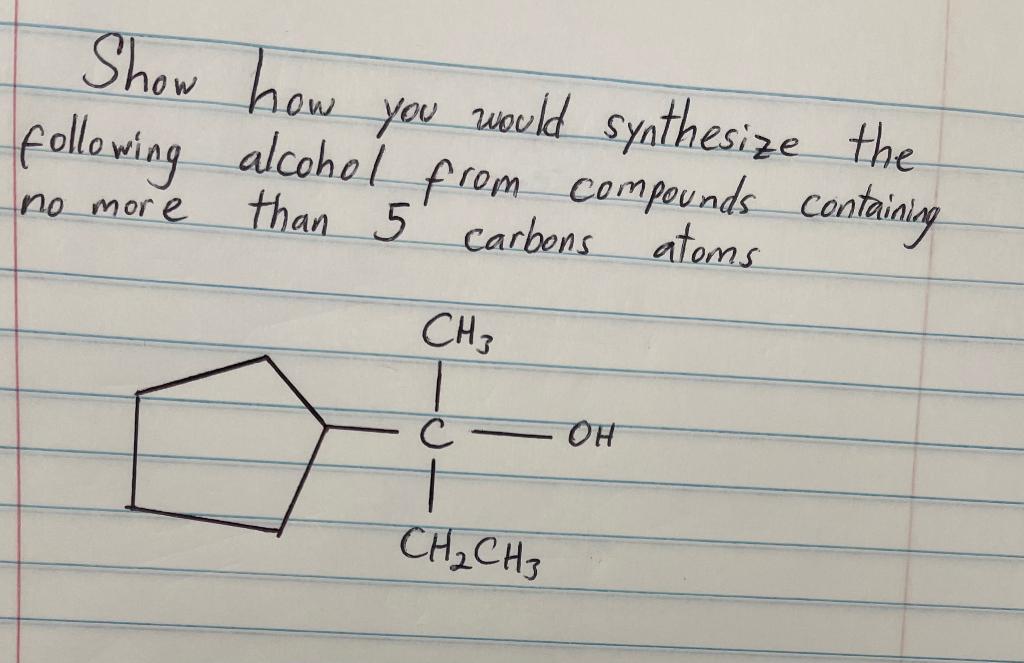 Show how you would synthesize the
following alcohol from compounds containing
no more than 5 carbons atoms
CH₃
C — OH
CH₂CH₃